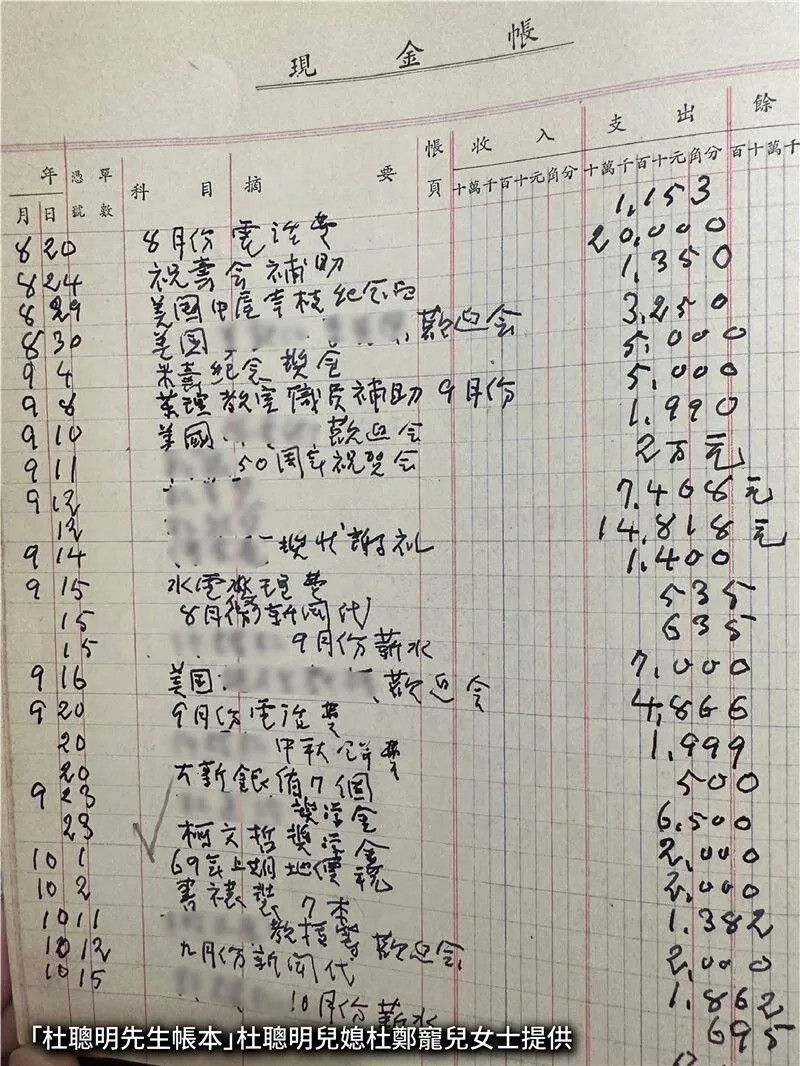 現金帳
年 憑單 科目 摘要 帳 收入 支出 餘
月 日 號數 頁 十萬千百十元角分 十萬千百十元角分 百十萬千
8 20 8月份電話費 1,153
8 24 祝壽会補助 20,000
8 29 美国中屋幸枝紀念 1,350
8 30 美国 歡迎会 3,250
9 4 米壽紀念獎金 5,000
9 8 藥理教室職員補助 9月份 5,000
9 10 美國 歡迎会 1,990
9 11 50周年祝賀会 2万元
9 12 7,408元
12 獎狀謝礼 14,818元
9 14 水電 理費 1,400
9 15 8月份新聞代 535
15 9月份薪水 635
15
9 16 美国 歡迎会 7,000
9 20 9月份電話費 4,866
20 中秋 費 1,999
20 大新銀值7個 500
9 23 獎学金 6,500
23 柯文哲獎学金 2,000
10 1 69年上期地價稅 2,000
10 2 書 裝 7本 1,382
10 11 歡迎会 2,000
10 12 九月份新聞代 1,862
10 15 10月份薪水 695
「杜聰明先生帳本」杜聰明兒媳杜鄭寵兒女士提供